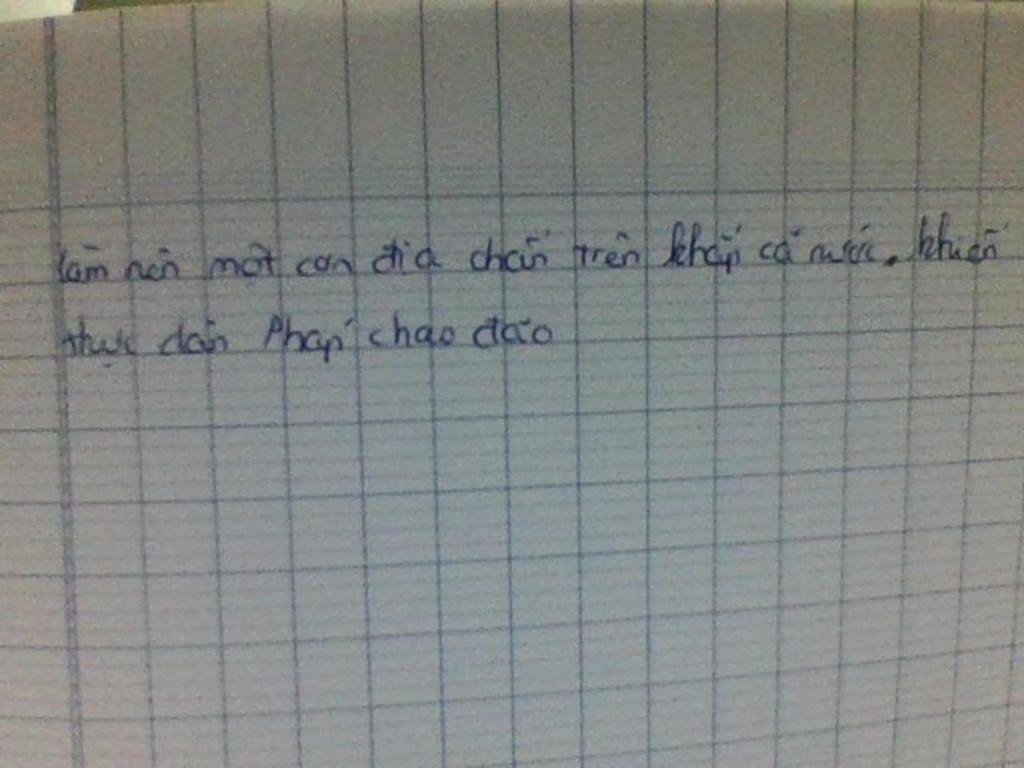 làm nên một cơn địa chấn trên khắp cả nước. khiến
thực dân Pháp chao đảo